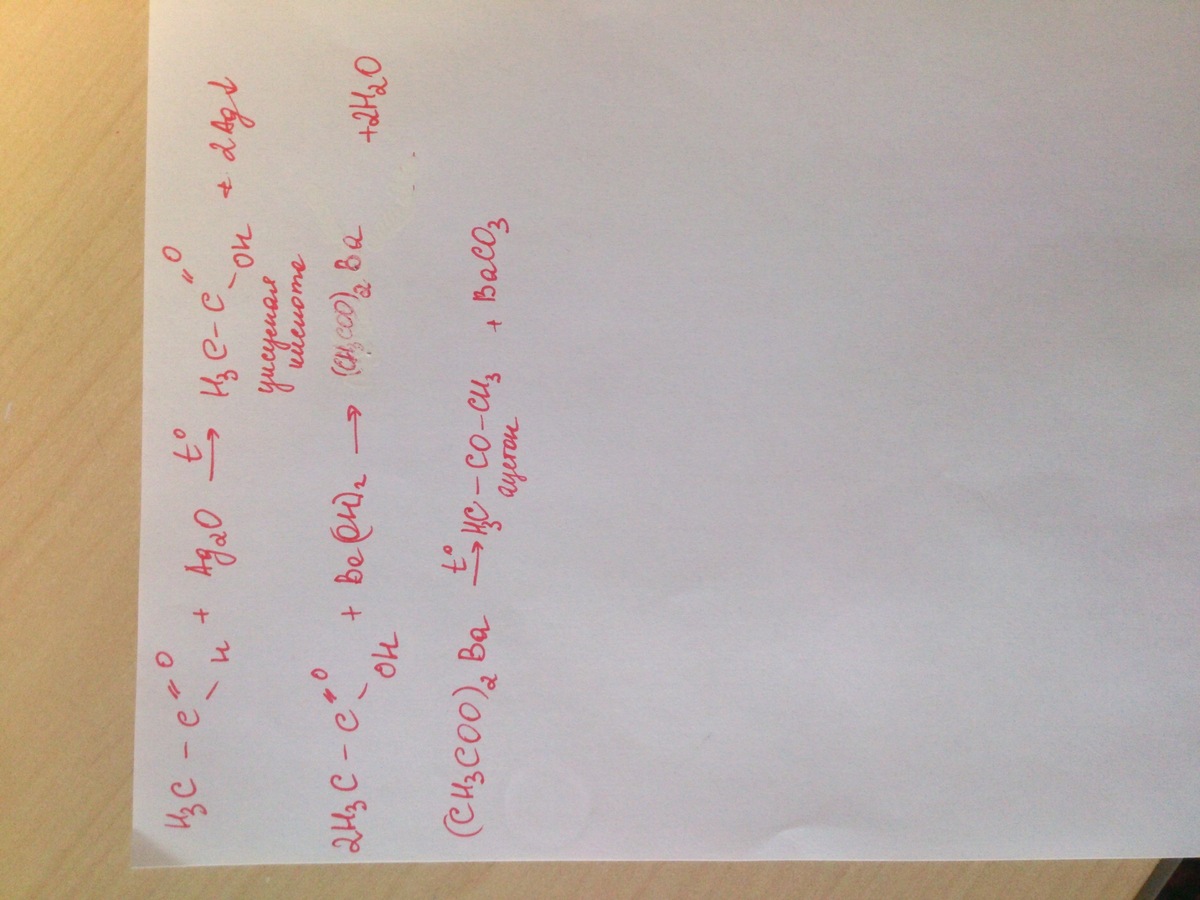 H₃C – C =O – H + Ag₂O t° → H₃C – C =O – OH + 2Ag↓
уксусная
кислота
2H₃C – C =O – OH + Ba(OH)₂ → (CH₃COO)₂Ba + 2H₂O
(CH₃COO)₂Ba t° → H₃C – CO – CH₃ + BaCO₃
ацетон